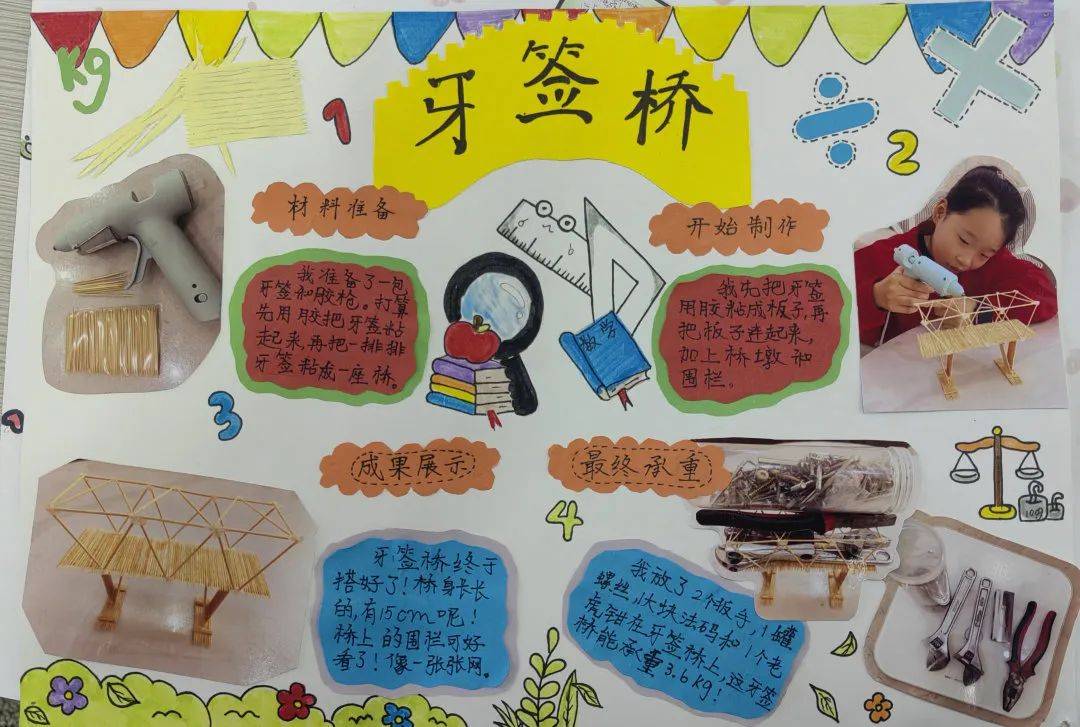 牙签桥
Kg
1
2
材料准备
我准备了一包
牙签和胶枪。打算
先用胶把牙签粘
起来,再把一排排
牙签粘成一座桥。
数学
开始制作
我先把牙签
用胶粘成板子,再
把板子连起来,
加上桥墩和
围栏。
3
成果展示
牙签桥终于
搭好了!桥身长长
的,有15cm呢!
桥上的围栏可好
看了!像一张张网。
4
最终承重
我放了2个扳手,1罐
螺丝,1大块法码和1个老
虎钳在牙签桥上,这牙签
桥能承重3.6kg!